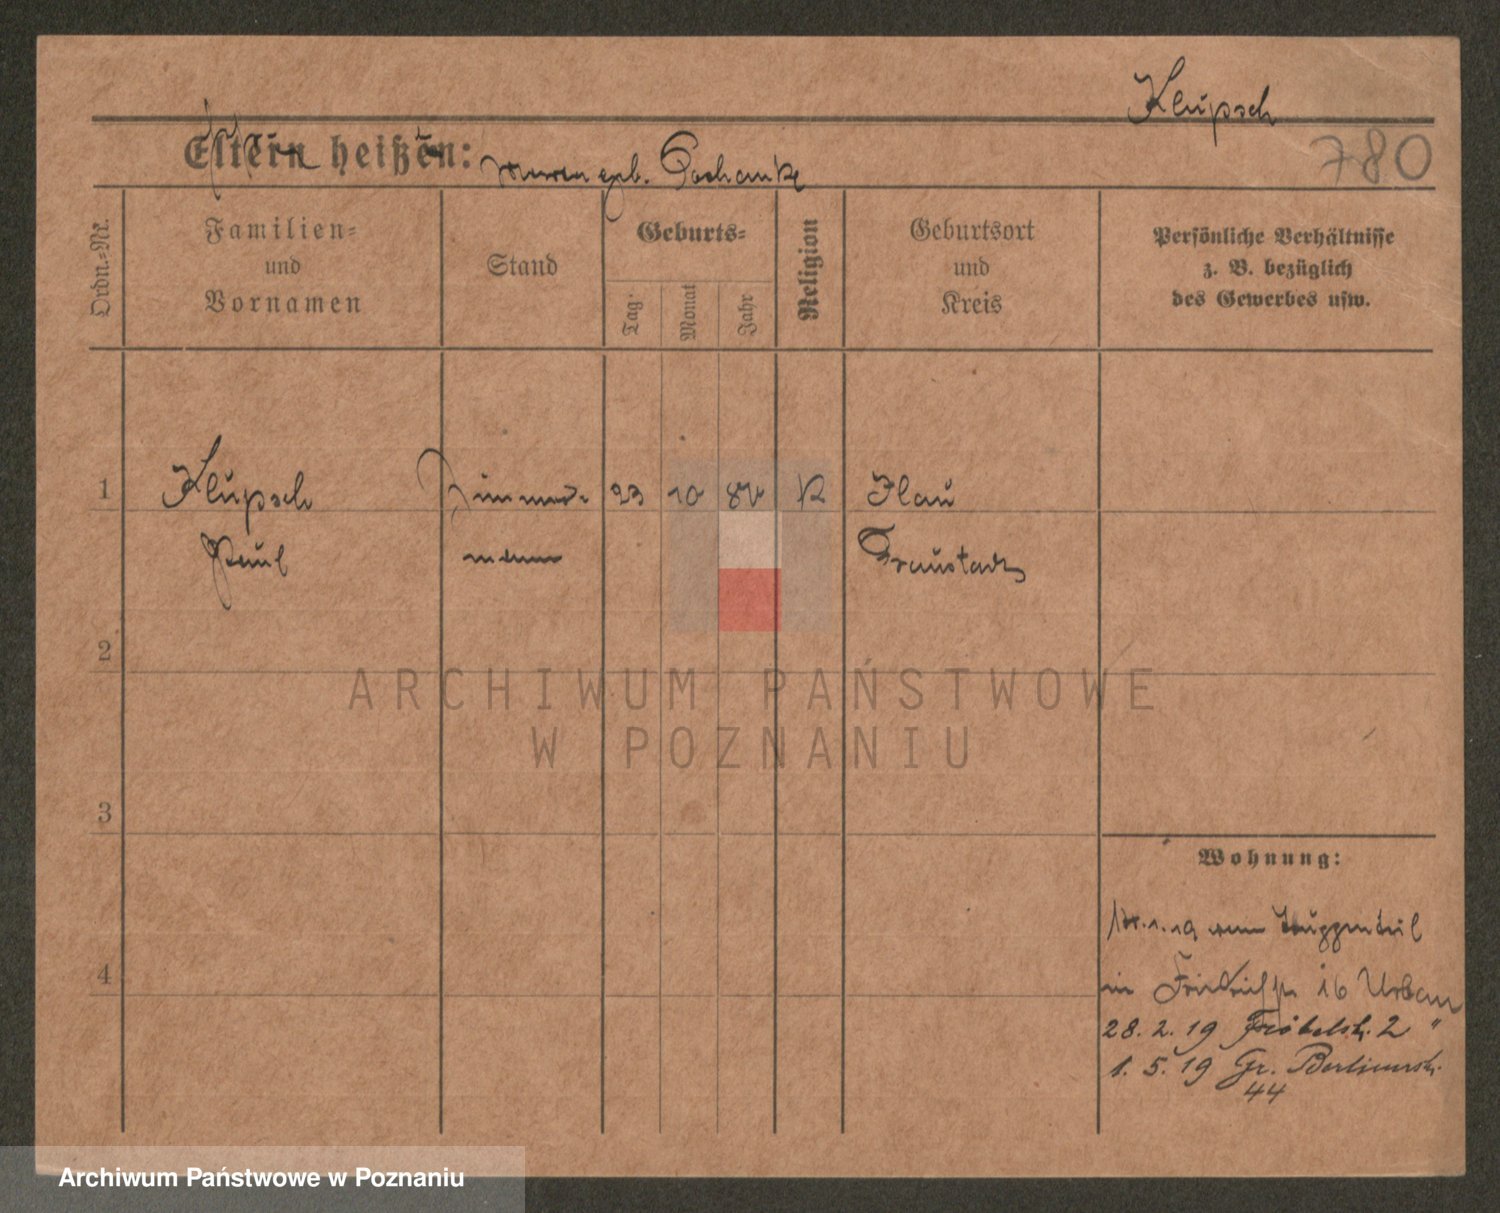 Klupsch
780
Eltern heißen:
geb.
Ordn.-Nr.
Familien=
und
Vornamen
Stand
Geburts=
Tag.
Monat
Jahr
Religion
Geburtsort
und
Kreis
Persönliche Verhältnisse
z. B. bezüglich
des Gewerbes usw.
1
Klupsch
Zimmer-
23
10
K
Ilau
Paul
mann
Fraustadt
2
3
4
ARCHIWUM PAŃSTWOWE
W POZNANIU
Wohnung:
1.19
in Friedrichstr 16 Urban
28. 2. 19 Fröbelstr. 2 "
1. 5. 19 Gr. Berlinerstr.
44
Archiwum Państwowe w Poznaniu